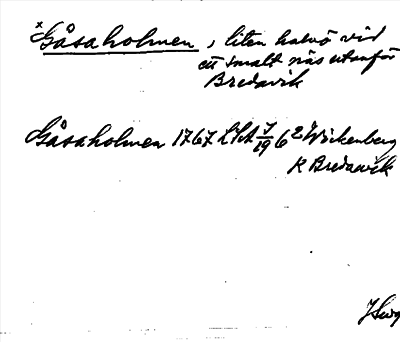 × Gåsaholmen, liten halvö vid
ett smalt näs utanför
Bredavik
Gåsaholmen 1767 LSA J/19 6 2 Wickenberg
K Bredavik